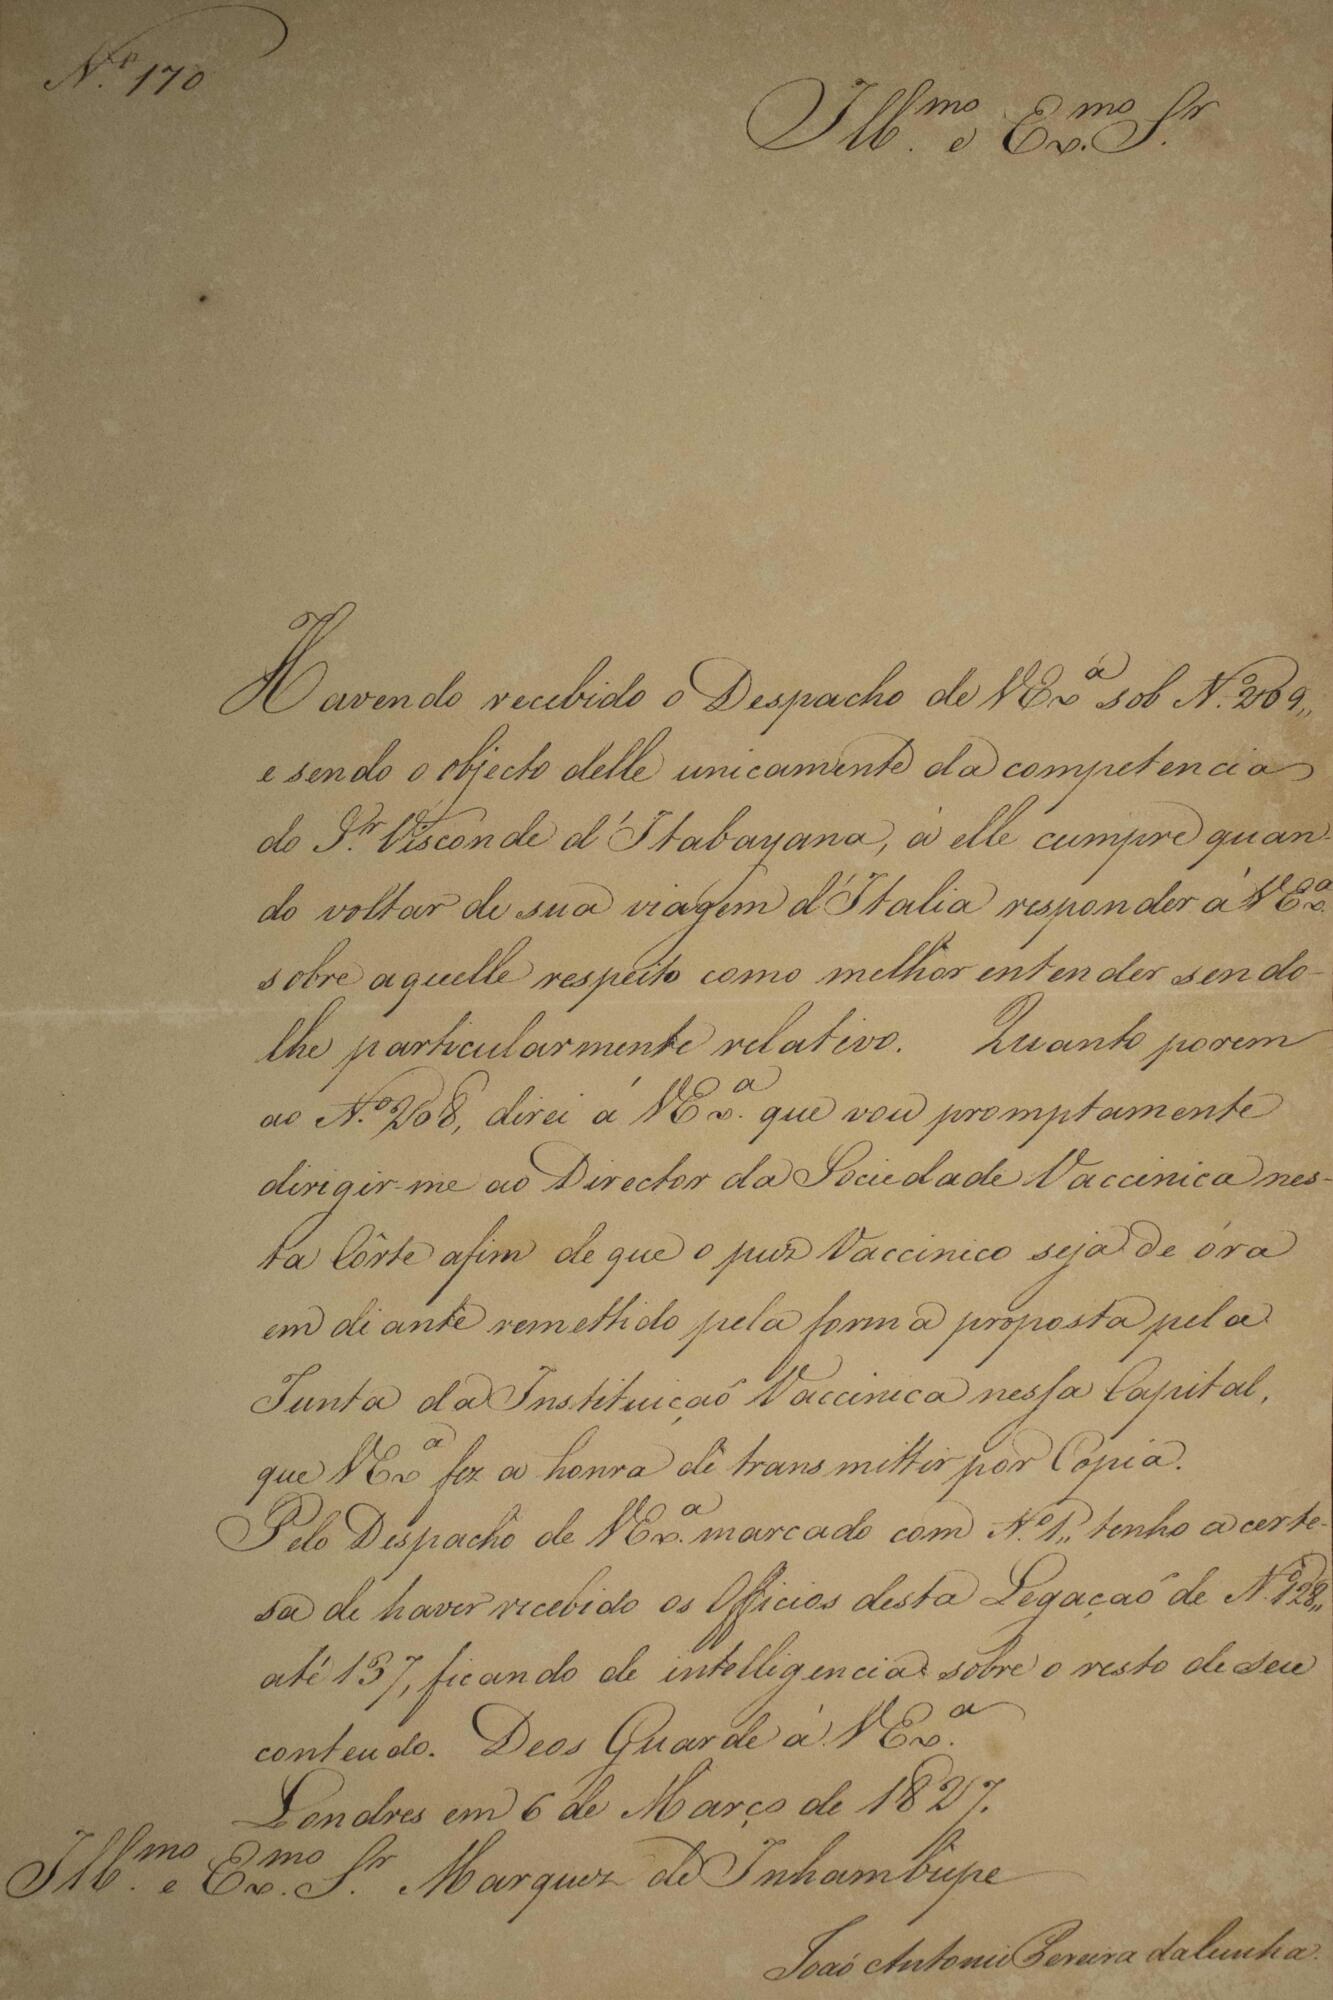 N.º 170
Ill.mo e Ex.mo Sr.
Havendo recebido o Despacho de VExa sob N.º 209,,
e sendo o objecto delle unicamente da competencia
do Sr. Visconde d'Itabayana, à elle cumpre quan-
do voltar de sua viagem d'Italia responder à VExa.
sobre aquelle respeito como melhor entender sendo-
lhe particularmente relativo. Quanto porem
ao N.º 208, direi á VExa. que vou promptamente
dirigir-me ao Director da Sociedade Vaccinica nes-
ta Côrte afim de que o puz Vaccinico seja de óra
em diante remettido pela forma proposta pela
Junta da Instituiçaõ Vaccinica nessa Capital,
que VExa fez a honra de transmittir por Copia.
Pelo Despacho de VExa. marcado com N.º 1,, tenho a certe-
sa de haver recebido os Officios desta Legaçaõ de N.º 128,,
até 137, ficando de intelligencia sobre o resto de seu
conteudo. Deos Guarde à VExa.
Londres em 6 de Março de 1827.
Ill.mo e Ex.mo Sr. Marquez de Inhambupe
Joaõ Antonio Pereira da Cunha.